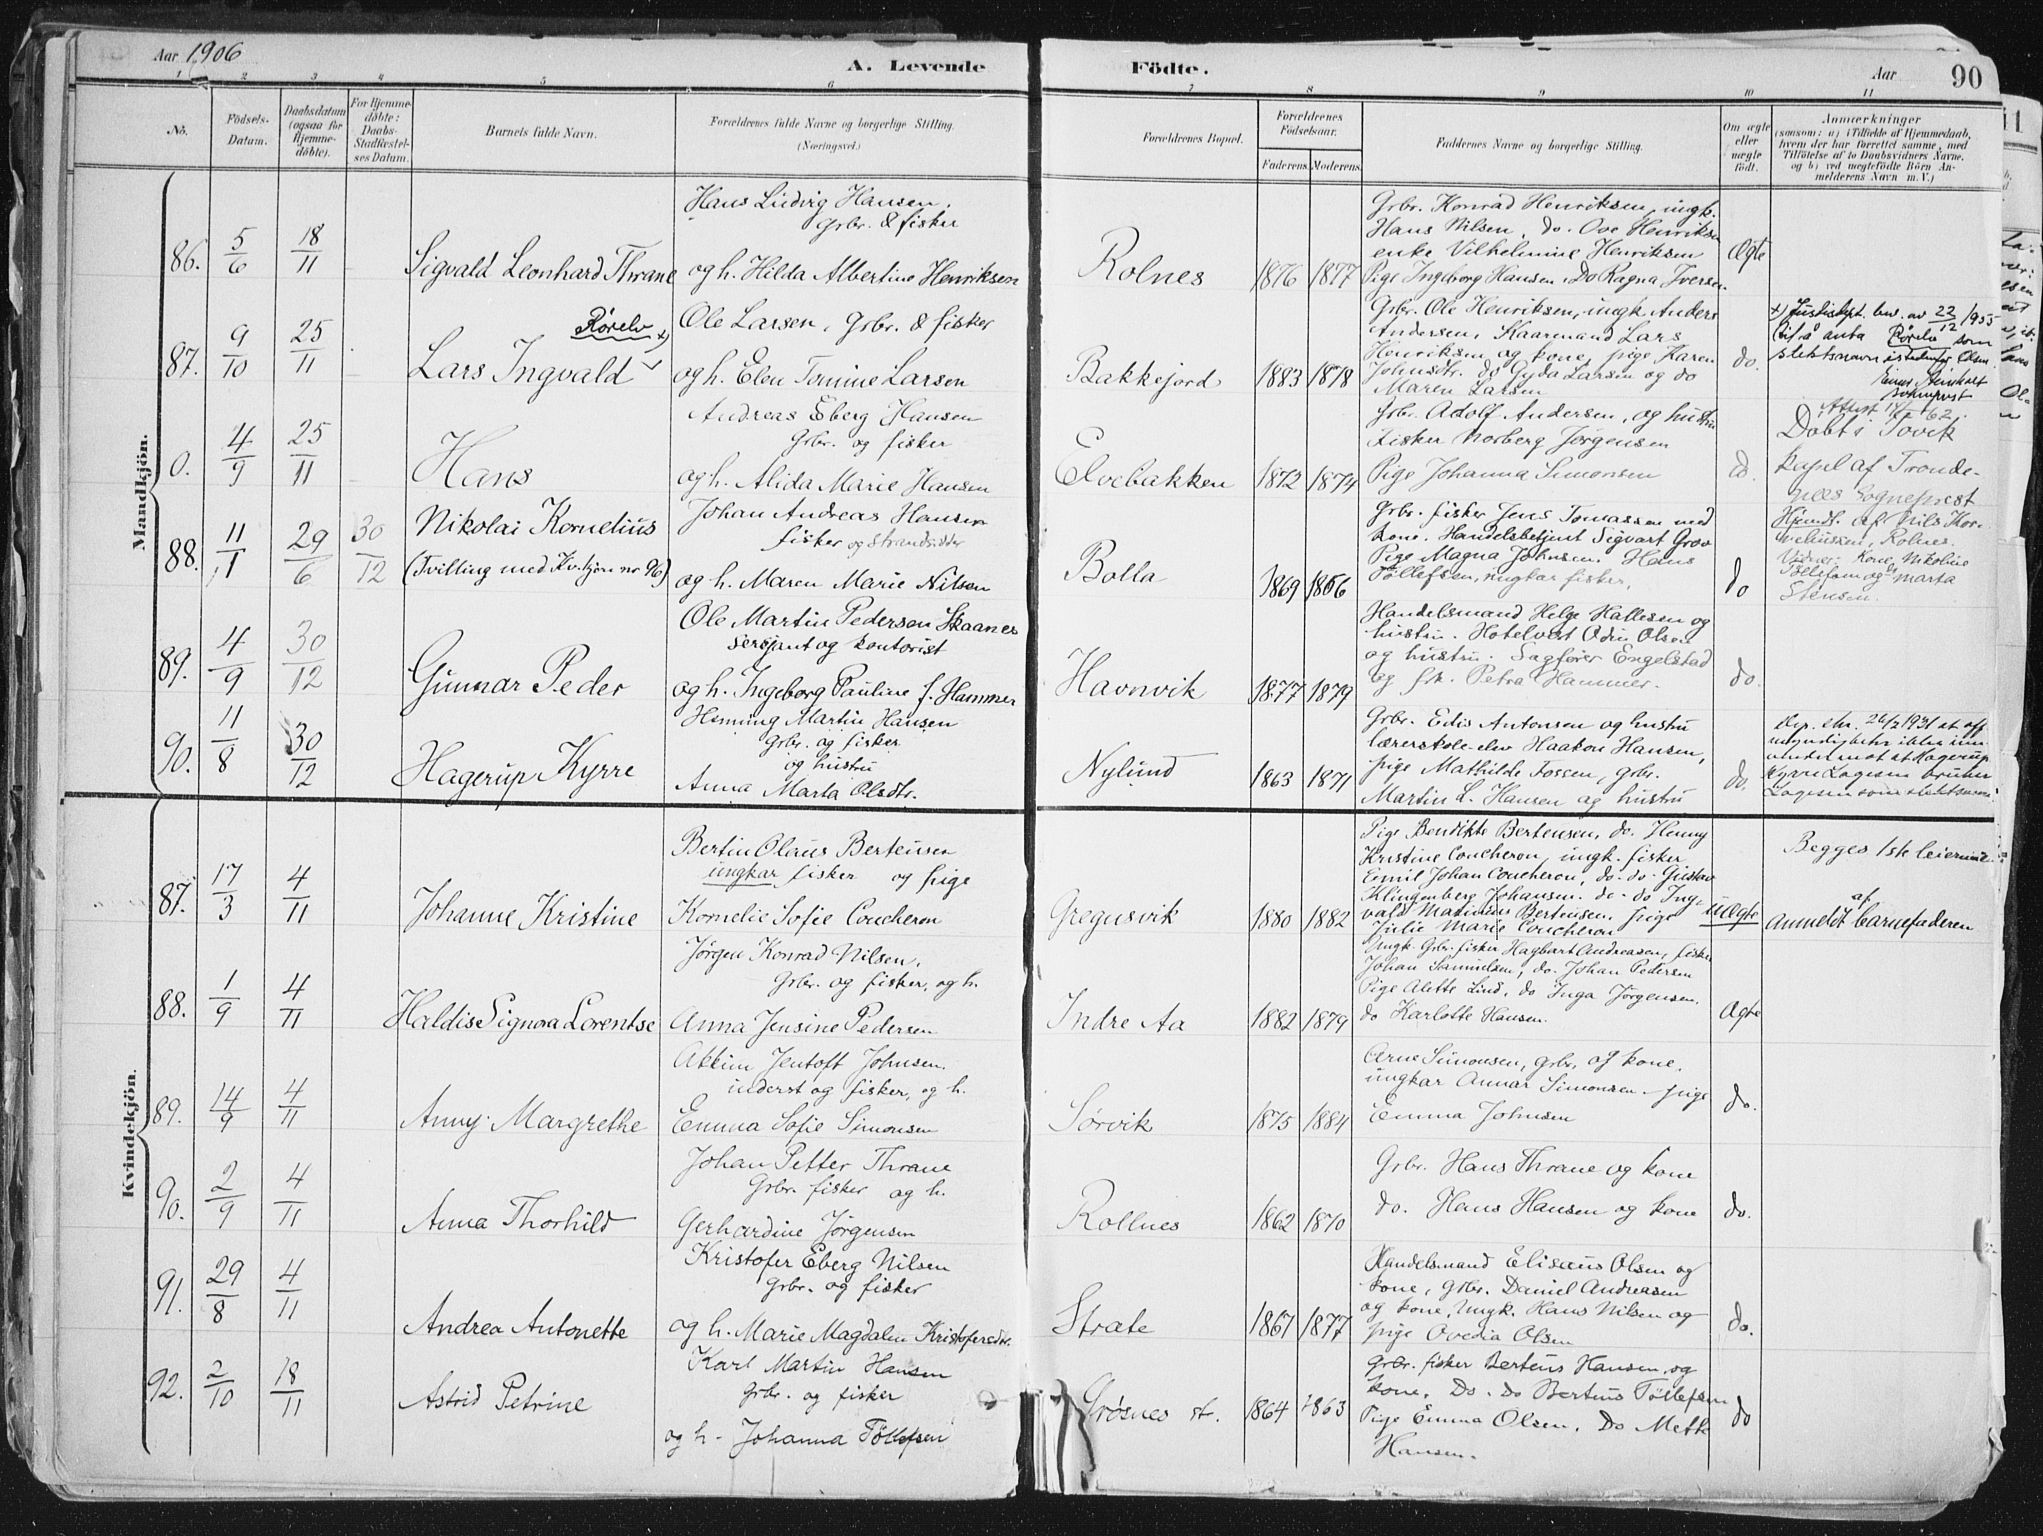 Aar 1906
A. Levende
Födte.
Aar
90
1 2 3 4 5 6 7 8 9 10 11
No.
Födsels-
Datum.
Daabsdatum
(ogsaa for
Hjemme-
döbte).
For Hjemme-
döbte:
Daabs-
Stadfæstel-
ses Datum.
Barnets fulde Navn.
Forældrenes fulde Navne og borgerlige Stilling.
(Næringsvei.)
Forældrenes Bopæl.
Forældrenes
Födselsaar.
Faderens. Moderens.
Faddernes Navne og borgerlige Stilling.
Om ægte
eller
uægte
födt.
Anmærkninger
(saasom: a) i Tilfælde af Hjemmedaab,
hvem der har forrettet samme, med
Tilföielse af to Daabsvidners Navne,
og b) ved uægtefödte Börn An-
melderens Navn m. V.)
Mandkjön.
86. 5/6 18/11
Sigvald Leonhard Thrane
Hans Ludvig Hansen.
Grbr. & fisker
og h. Hilda Albertine Henriksen
Rolnes
1876 1877
Grbr. Konrad Henriksen, ungk.
Hans Nilsen, do. Ove Henriksen
enke Vilhelmine Henriksen
Pige Ingeborg Hansen, Do Ragna Iversen
Ægte
87. 9/10 25/11
Rørelv x)
Lars Ingvald
Ole Larsen, Grbr. & fisker
og h. Elen Tomine Larsen
Bakkejord
1883 1878
Grbr. Ole Henriksen, ungk Anders
Andersen, Kaarmand Lars
Henriksen og kone, pige Karen
Johnsdtr. do Gyda Larsen og do
Maren Larsen
do.
x) Justisdpt. bev. av 22/12 1955
til å anta Rørelv som
slektsnavn istedenfor Olsen
Attest 62.
0. 4/9 25/11
Hans
Andreas Esberg Hansen
Grbr. og fisker
og h. Alida Marie Hansen
Elvebakken
1872 1874
Grbr. Adolf Andersen, og hustru
Fisker Norberg Jørgensen
Pige Johanna Simonsen
do.
Døbt i Tovik
Kapel af Tronde-
næs Sogneprest
88. 11/1 29/6 30/12
Nikolai Kornelius
(Tvilling med Kv.kjøn nr 96)
Johan Andreas Hansen
fisker og strandsidder
og h. Maren Marie Nilsen
Bolla
1869 1866
Grbr. fisker Jens Tomassen med
kone. Handelsbetjent Sigvart Grov
Pige Magna Johnsen. Hans
Tøllefsen, ungkar fisker.
do
Hjemd. af Nils Kor-
neliussen, Rolnes.
Vidner: Kone Nikoline
Tøllefsen og do Marta
Stensen.
89. 4/9 30/12
Gunnar Peder
Ole Martin Pedersen Skaanes
Sersjant og kontorist
og h. Ingeborg Pauline f. Hammer
Havnvik
1877 1879
Handelsmand Helge Hallesen og
hustru. Hotelvert Odin Olsen
og hustru. Sagfører Engelstad
og frk. Petra Hammer.
do.
90. 11/8 30/12
Hagerup Kyrre
Heming Martin Hansen
Grbr. og fisker
og hustru
Anna Marta Olsdtr.
Nylund
1863 1871
Grbr. Edis Antonsen og hustru
lærerskole-elev Haakon Hansen,
pige Mathilde Fossen, Grbr.
Martin L. Hansen og hustru
do.
26/2 1931 at
myndigheter ikke inn-
vendet mot at Hagerup
Kyrre Lagesen bruker
Lagesen som slektsnavn.
Kvindekjön.
87. 17/3 4/11
Johanne Kristine
Bertin Olaus Berteusen
ungkar fisker og pige
Kornelie Sofie Coucheron
Gregusvik
1880 1882
Pige Bendikte Bertensen, do. Henny
Kristine Coucheron, ungk. fisker
Emil Johan Coucheron, do. do. Gustav
Klingenberg Johansen. do. do Ing-
vald Matinius Bertensen. pige
Julie Marie Coucheron
Uægte
Begges 1ste leiermaal
Anmeldt af barnefaderen
88. 1/9 4/11
Haldis Signora Lorentse
Jørgen Konrad Nilsen.
Grbr. og fisker, og h.
Anna Jensine Pedersen
Indre Aa
1882 1879
Ungk. Grbr. fisker Hagbart Andreasen, fisker
Johan Samuelsen, do. Johan Pedersen
Pige Alette Lind, do Inga Jørgensen.
do Karlotte Hansen.
Ægte
89. 14/9 4/11
Anny Margrethe
Akkim Jentoft Johnsen.
inderst og fisker, og h.
Emma Sofie Simonsen
Sørvik
1875 1884
Arne Simonsen, grbr. og kone.
ungkar Annar Simonsen, pige
Emma Johnsen
do.
90. 2/9 4/11
Anna Thorhild
Johan Petter Thrane
Grbr. fisker og h.
Gerhardine Jørgensen
Rollnes
1862 1870
Grbr. Hans Thrane og kone
do. Hans Hansen og kone
do.
91. 29/8 4/11
Andrea Antonette
Kristofer Eberg Nilsen
Grbr. og fisker
og h. Marie Magdalen Kristofersdtr.
Stræte
1867 1877
Handelsmand Elisæus Olsen og
kone, Grbr. Daniel Andreasen
og kone, Ungk. Hans Nilsen og
pige Ovedia Olsen
do.
92. 2/10 18/11
Astrid Petrine
Karl Martin Hansen
Grbr. og fisker
og h. Johanna Tøllefsen
Grøsnes st.
1864 1863
Grbr. fisker Berteus Hansen og
kone. Do. do Berteus Tøllefsen
Pige Emma Olsen. Do Mette
Hansen.
do